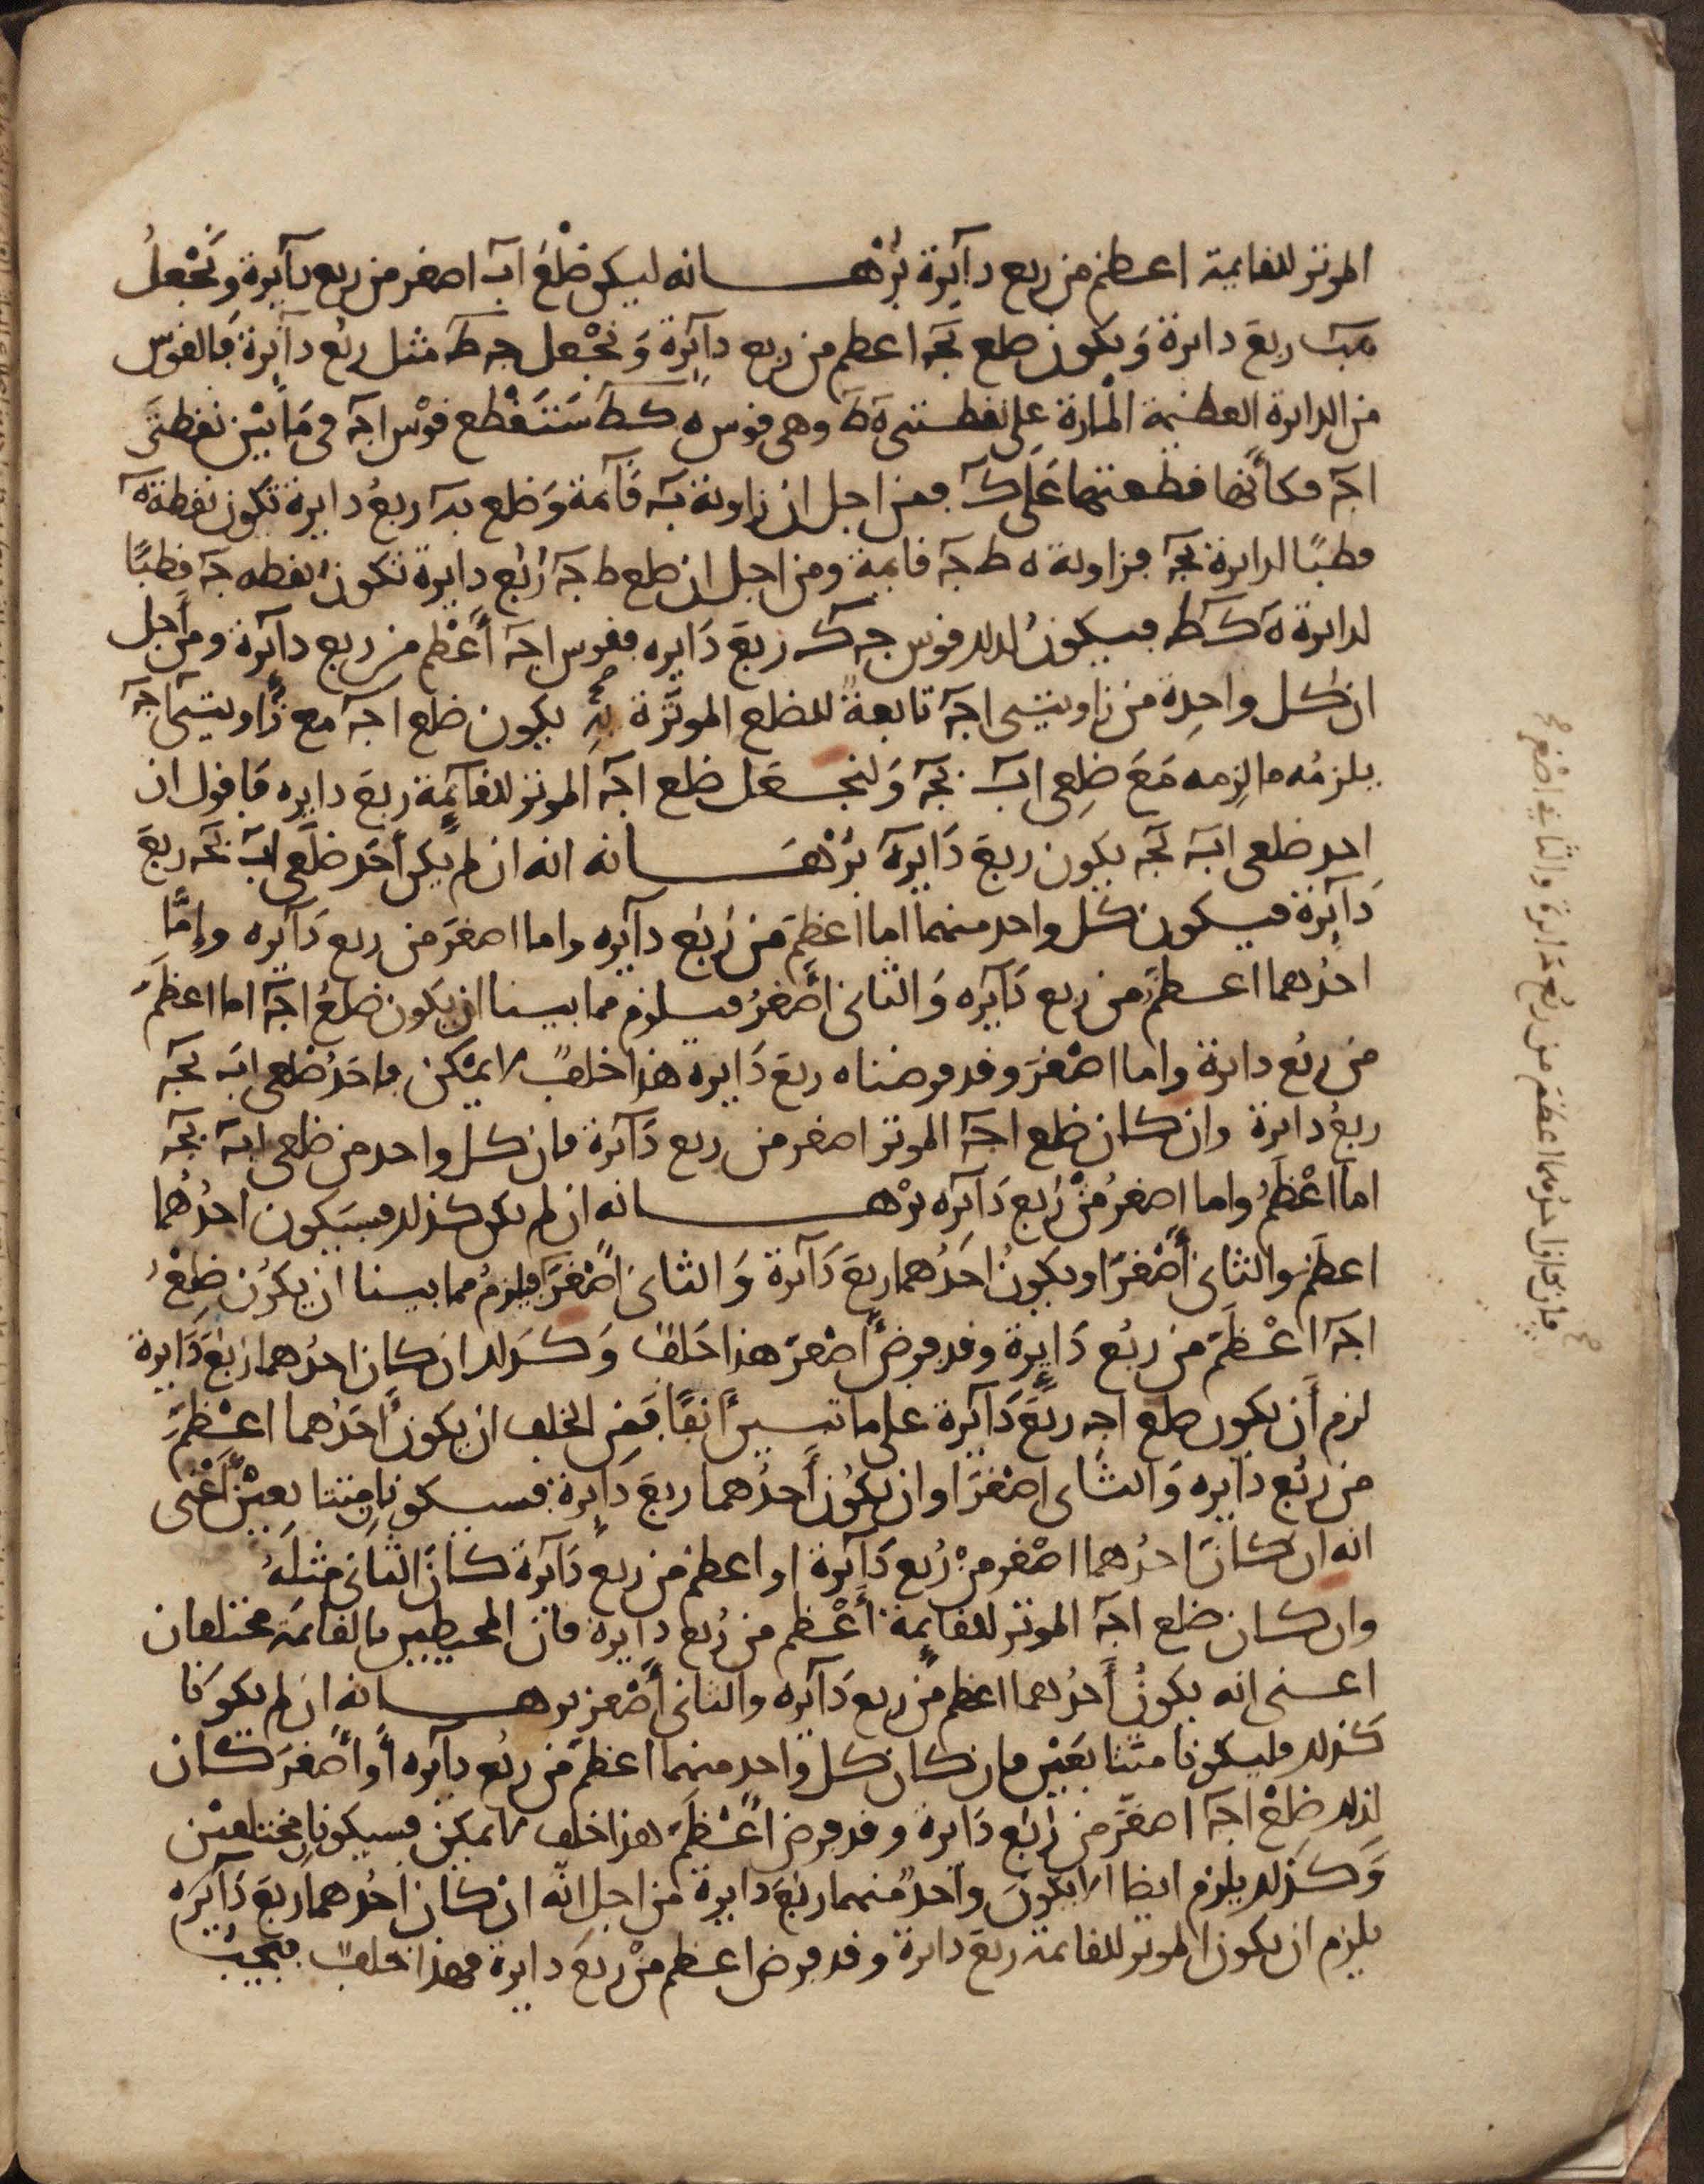 الموتر للقايمة اعظم من ربع دآئرة بُرْهـــانه ليكن ضلْعُ اب اصغر من ربع دآئرة وَنَجْعلُ
ربعَ دايرة وَيكون ضلع بجـ اعظم من ربع دآئرة وَنَجْعل جـ ط مثل ربُع دآئرة فالقوس
من الدايرة العظيمة المارة على نقطتى ه ط وهى قوس ه ك ط سَتَقْطع قوْس اجـ فى مَا بَيْن نقطتَى
اجـ فكأنّها قطعتها عَلى ك فمن اجل ان زاوية ب قآئمة وَضلع ب ربعُ دايرة تكون نقطة ه
قطبًا لدايرة بجـ فزاوية ه ط جـ قايمة ومن اجل ان ضلع ط جـ رُبُع دايرة تكون نقطه جـ قطبًا
لدايرة ه ك ط فيكونُ لذلك قوس جـ ك ربعَ دَايره فقوس اجـ أَعْظم من ربع دآئرة ومن أجل
ان كل واحِدة من زاويتى اجـ تابعةٌ للضلع الموتَّرة بِهِ يكون ضلع اجـ مع زَاويتى اجـ
يلزمُه ما لزِمه مَعَ ضِلعى اب بجـ وَلنجـعَل ضلع اجـ الموتر للقآئمة ربعَ دايره فاقول ان
احد ضلعى اب بجـ يكون ربعَ دَايرة بُرْهـــانه انه ان لم يكن أحَد ضلَعى اب بجـ ربعَ
دَآئرة فيكون كل واحد منهما اما اعظمَ من رُبُع دآئره واما اصغرَ من ربع دَآئره وإمَّا
احدُهما اعظمَ من ربع دَآئره وَالثانى أصْغرُ فيلزم مما بينا ان يكون ضلعُ اجـ اما اعظمَ
من ربُع دايرة واما اصْغرَ وقد فرضناه ربعَ دَايره هذا خلفٌ لا يمْكن فاحَدُ ضلعى اب بجـ
ربعُ دايرة وان كان ضلع اجـ الموتر اصغر من ربع دَآئرة فان كل واحد من ضلعى اب بجـ
امّا اعْظمُ واما اصغرُ منْ رُبع دَآئره بُرْهـــانه ان لم يكن كذلك فسَيكون احدُهُما
اعظَمَ والثانى أَصْغرَ او يكونُ احَدُهما ربعَ دَآئرة وَالثانى اصْغرَ فيلزمُ مما بينا ان يكُون ضِلعُ
اجـ اعْظَمَ من ربُع دَايرة وقد فرضَ أَصْغرَ هذا خَلفٌ وَكَذلك ان كان احدُهما رُبُعَ دَايرة
لزم أَن يكون ضلع اجـ ربعَ دَآئرة على ما تبيّن أنفًا فمن الخلف ان يكونَ أحَدُهما اعْظمَ
من ربُع دَايره وَالثانى اصْغرَ او ان يكُون أَحدُهما ربعَ دَايرة فسيكونا مِتتابعيْنِ أَعْنى
انه ان كانَ احدُهما اصْغر منْ رُبع دَآئرة او اعظم من ربع دَآئرة كانَ الثانى مثلَهُ
وان كان ضلع اجـ الموتر للقايمة أَعْظم من رُبُع دايرة فان المحيطين بالقائمة مختلفان
اعنى انه يكونُ أَحدُهما اعظم من ربع دَآئره والثانى أَصْغر برهـــانه ان لم يكوَنا
كذلك فليكونا متتابعَيْن فان كان كل واحد منهما اعظمَ من ربُع دآئره أَو أَصْغرَ كان
لذلك ضلْعُ اجـ اصغرَ من رُبُع دَايرة وقد فرض أَعْظمَ هذا خلف لا يمكن فسيكونا مختلفيْن
وَكَذلك يلزم ايضا الا يكونَ واحدٌ منهما ربُعَ دايرة من اجل انّه ان كان احدُهما ربعَ دَآئرَه
يلزم ان يكون الموتر للقايمة ربعَ دايرة وقد فرض اعظم منْ ربُع دايرة فهذا خلفٌ فيجبُ
فان كان احدُهما اعظمَ من ربُع دَايرة والثانى اصْغر